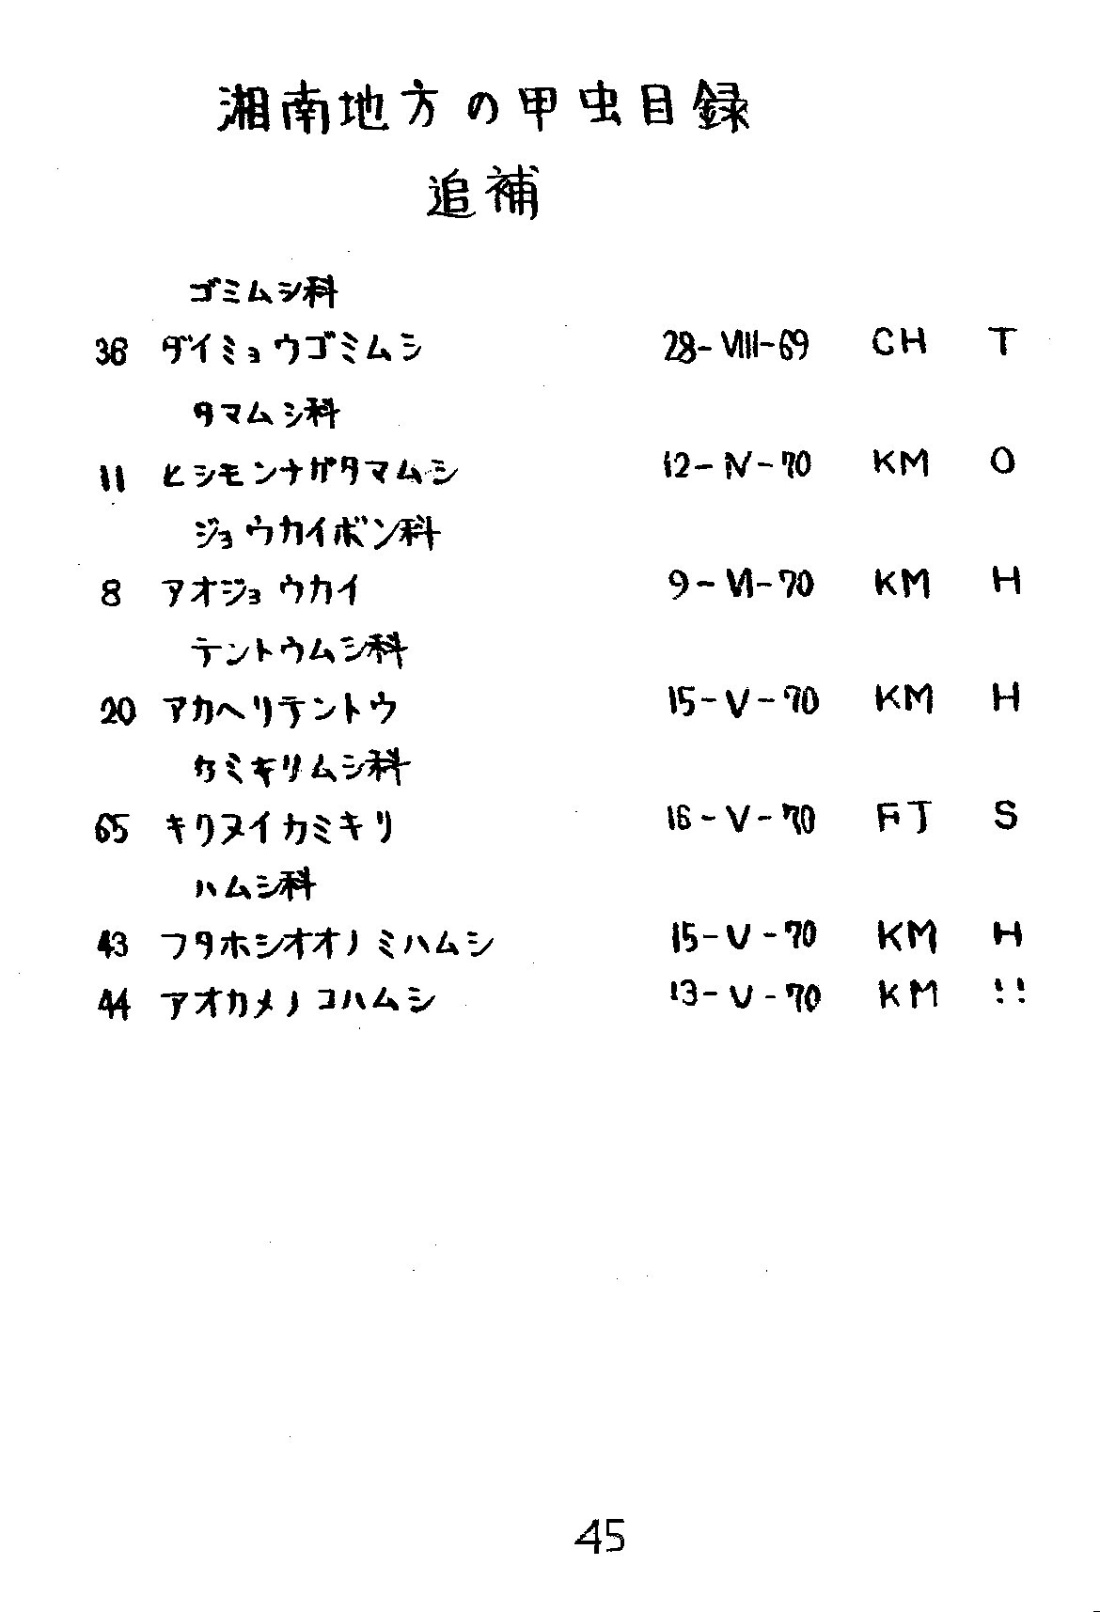 湘南地方の甲虫目録
追補
ゴミムシ科
36 ダイミョウゴミムシ 28-VIII-69 CH T
タマムシ科
11 ヒシモンナガタマムシ 12-IV-70 KM O
ジョウカイボン科
8 アオジョウカイ 9-VI-70 KM H
テントウムシ科
20 アカヘリテントウ 15-V-70 KM H
カミキリムシ科
65 キクヌイカミキリ 16-V-70 FJ S
ハムシ科
43 フタホシオオノミハムシ 15-V-70 KM H
44 アオカメノコハムシ 13-V-70 KM !!
45